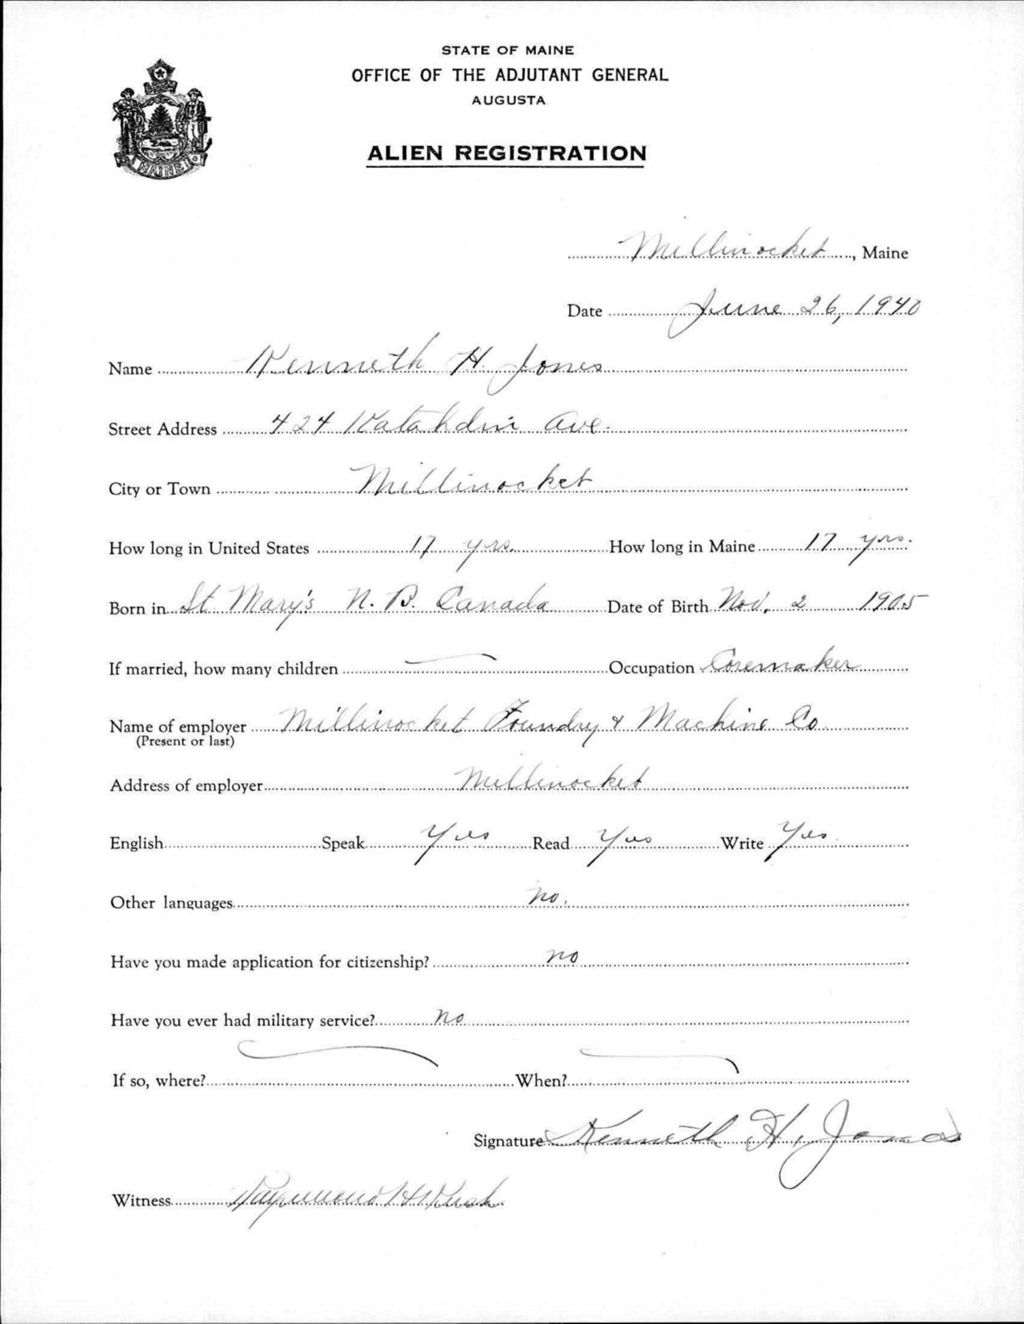 STATE OF MAINE
OFFICE OF THE ADJUTANT GENERAL
AUGUSTA
ALIEN REGISTRATION
MAINE
Millinocket, Maine
Date June 26, 1940
Name Kenneth H. Jones
Street Address 424 Katahdin Ave.
City or Town Millinocket
How long in United States 17 yrs. How long in Maine 17 yrs.
Born in St Mary's N. B. Canada Date of Birth Nov. 2 1905
If married, how many children — Occupation Coremaker
Name of employer Millinocket Foundry & Machine Co
(Present or last)
Address of employer Millinocket
English Speak Yes Read Yes Write Yes.
Other languages No.
Have you made application for citizenship? no
Have you ever had military service? No
If so, where? — When? —
Signature Kenneth H. Jones
Witness Raymond H